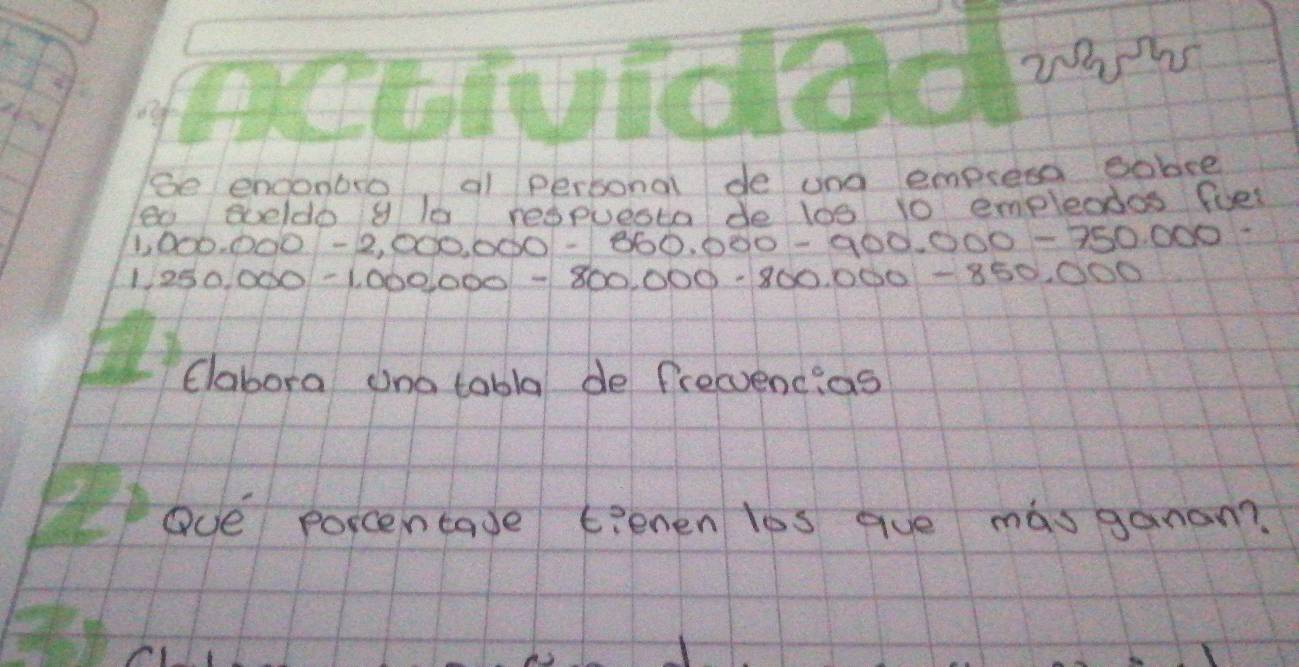 Actividad
Se enconbro, al personal de una empresa sobre
eo sueldo y la respuesta de los 10 empleados fue:
1,000.000 - 2,000,000 - 860.000 - 900.000 - 750.000 -
1,250,000 - 1.000,000 - 800.000 - 800.000 - 850.000
1) Elabora una tabla de frecuencias
2) Qué porcentaje tienen los que más ganan?
3)